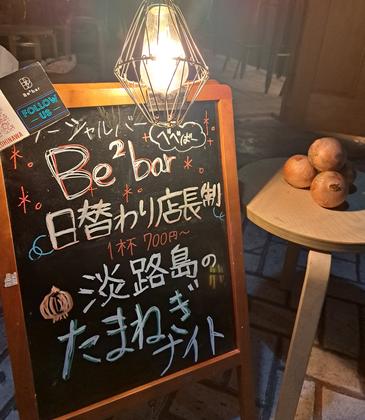 Be²bar
FOLLOW
US
OKINAWA
ーシャルバー
べべばー
Be²bar
日替わり店長制
1杯 700円~
淡路島の
たまねぎ
ナイト